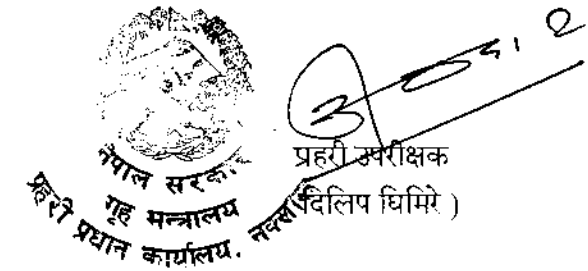 नेपाल सरकार
गृह मन्त्रालय
प्रहरी प्रधान कार्यालय,
प्रहरी उपरीक्षक
दिलिप घिमिरे )